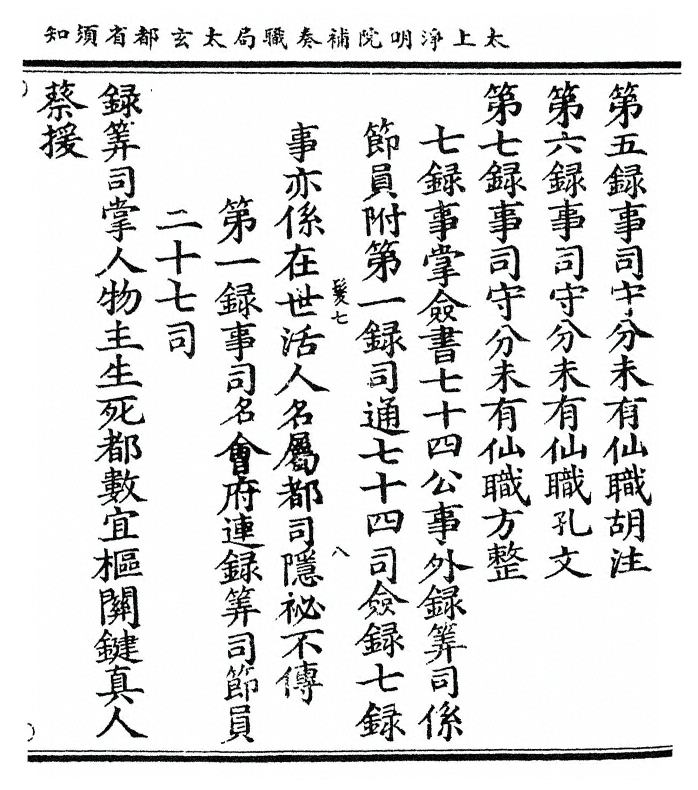 太上淨明院補奏職局太玄都省須知
第五録事司守分未有仙職胡注
第六録事司守分未有仙職孔文
第七録事司守分未有仙職方整
七録事掌僉書七十四公事外録筭司係
節員附第一録司通七十四司僉録七録
髪七
八
事亦係在世活人名屬都司隱祕不傳
第一録事司名會府連録筭司節員
二十七司
録筭司掌人物主生死都數宜樞關鍵真人
蔡援